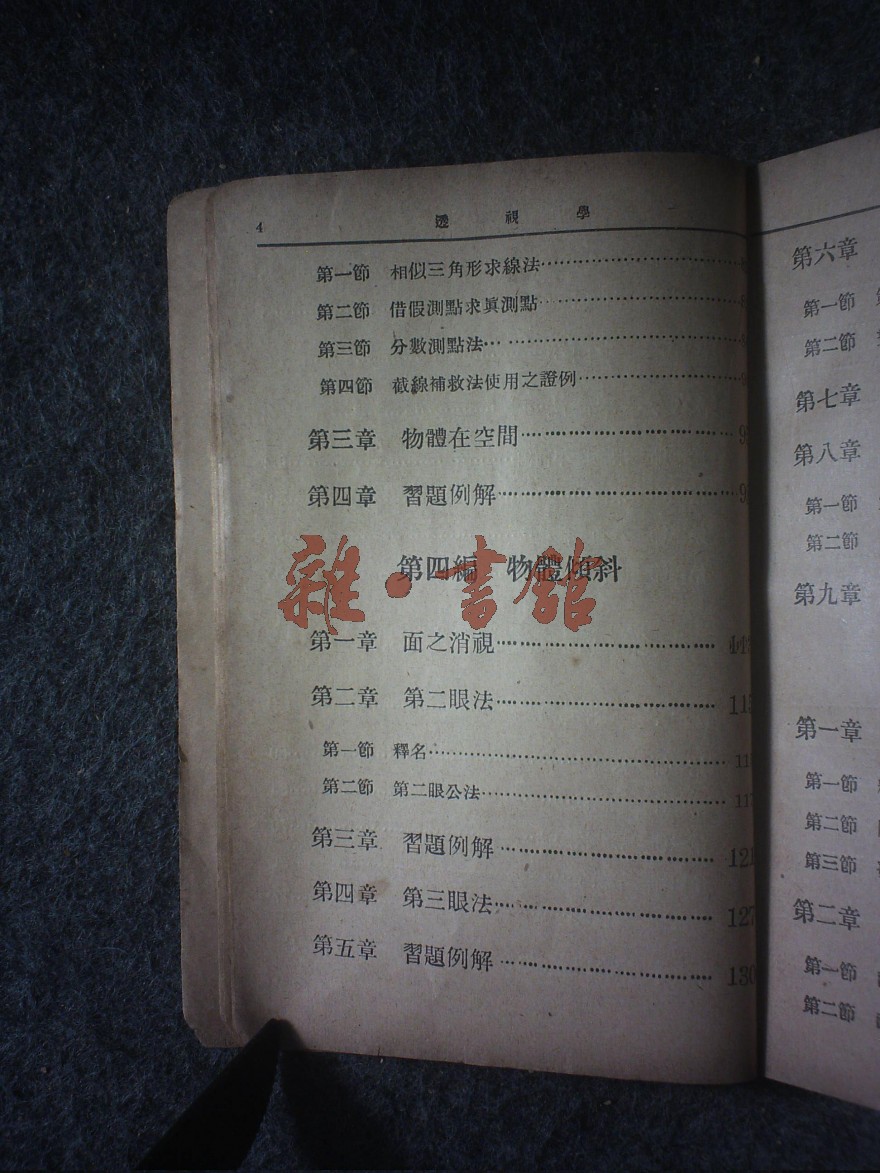 4 透視學
第一節 相似三角形求線法
第二節 借假測點求眞測點
第三節 分數測點法
第四節 截線補救法使用之證例
第三章 物體在空間 9
第四章 習題例解 9
第四編 物體傾斜
雜·書館
第一章 面之消視
第二章 第二眼法 113
第一節 釋名 11
第二節 第二眼公法 117
第三章 習題例解 121
第四章 第三眼法 127
第五章 習題例解 130
第六章
第一節
第二節
第七章
第八章
第一節
第二節
第九章
第一章
第一節
第二節
第三節
第二章
第一節
第二節